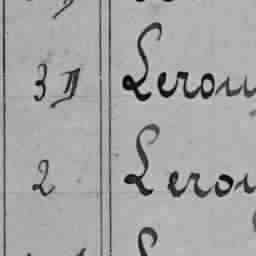 3 II Lerou
2 Lerou